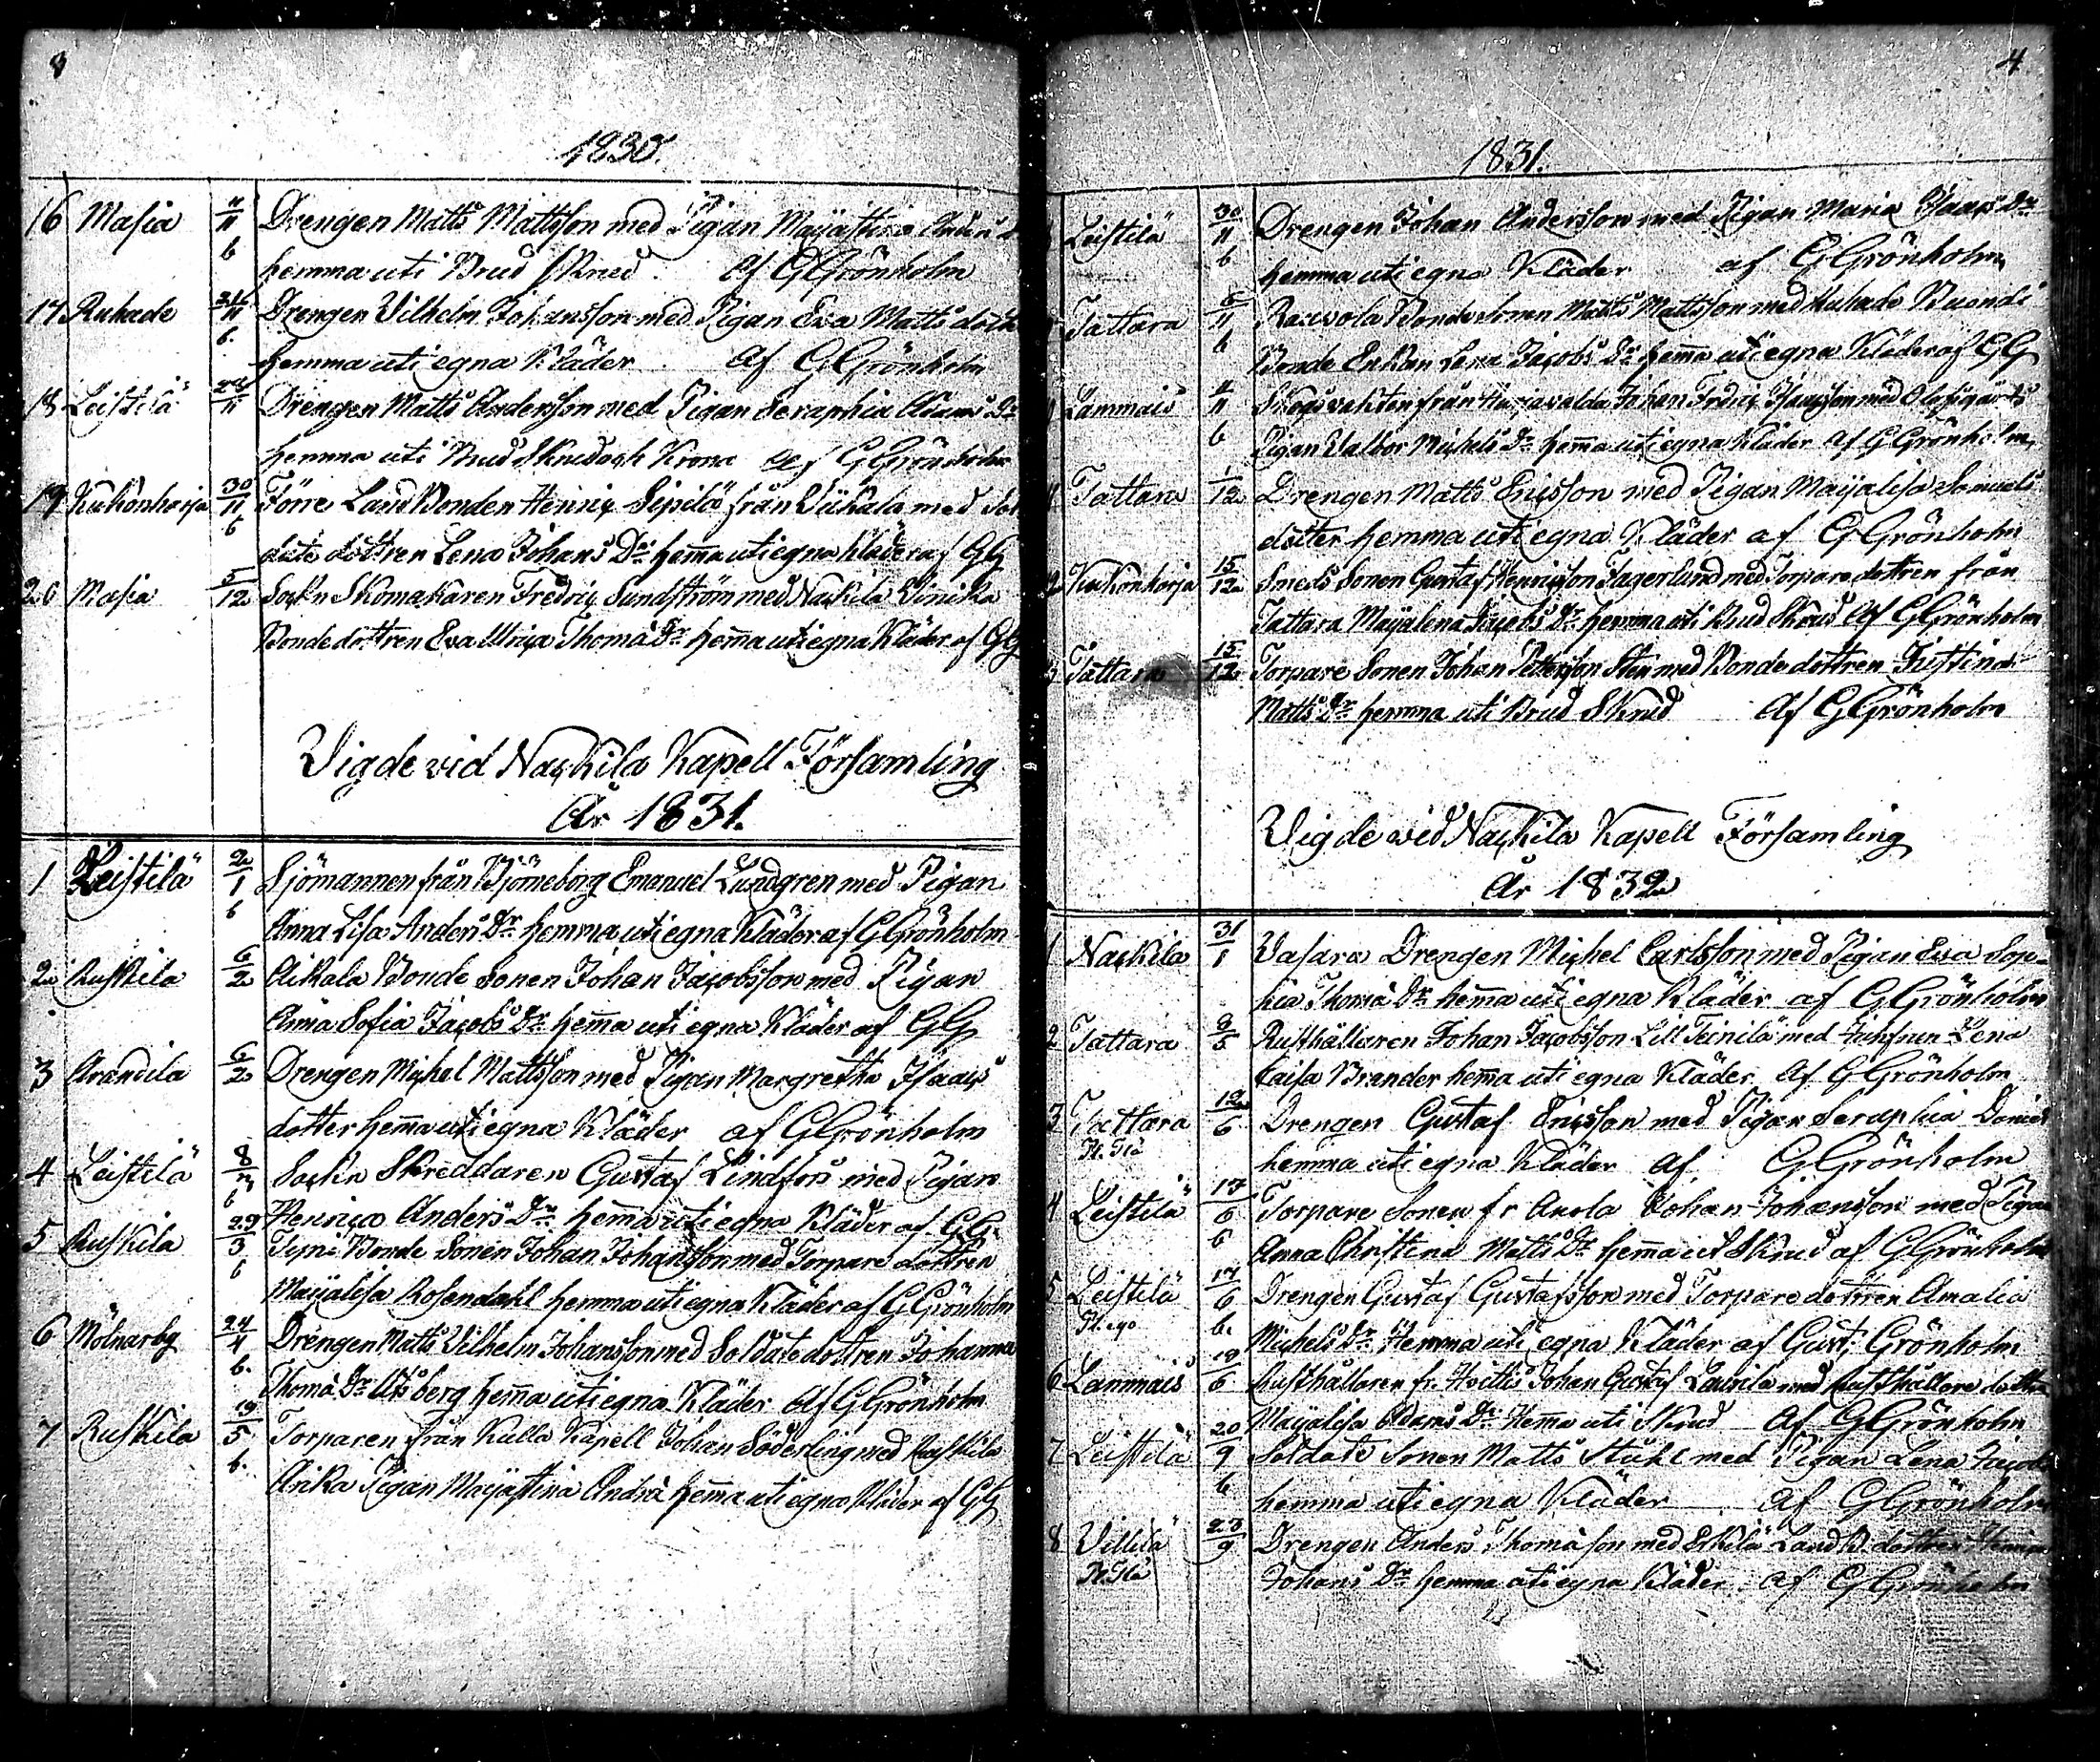 8
1830.
16 Masia 11/11 Drengen Matts Mattsson med Pigan Maijastina Anders
6 hemma uti Brud Skrud. af GGrönholm
17 Ruhade 11 Drengen Vilhelm Johansson med Pigan Eva Matts dott
6. hemma uti egna Kläder af GGrönholm
18 Leistilä 11 Drengen Matts Andersson med Pigan Seraphia Adams Dr
hemma uti Brud Skrud och Krona af GGrönholm
19 Kukonharja 30/11 Förre Land Bonden Henric Sipilä från med Sol
6 date dottren Lena Johans Dr hema uti egna kläder af GG
20 Masia 5/12 Sockn Skomakaren Fredric Sundström med Nackila Viinika
Bonde dottren Eva Ulrica Thomæ Dr hema uti egna Kläder af GG
Vigde vid Nackila Kapell Församling
År 1831.
1 Leistilä 2/1 Sjömannen från Björneborg Emanuel Lundgren med Pigan
6 Anna Lisa Anders Dr hemma uti egna Kläder af GGrönholm
2 Ruskila 6/2 Aikala Bonde Sonen Johan Jacobsson med Pigan
Anna Sofia Jacobs Dr hema uti egna Kläder af GG
3 Arandila 6/2 Drengen Michel Mattsson med Pigan Margretha Isaacs
dotter hema uti egna Kläder af GGrönholm
4 Leistilä 8/ Sockn Skräddaren Gustaf Lindfors med Pigan
6 Henrica Anders Dr hema uti egna Kläder af GG.
5 Ruskila 29/3 Bonde Sonen Johan Johansson med Torpare dottren
6 Maijalisa Rosendahl hemma uti egna Kläder af GGrönholm
6 Molnarby 24/4 Drengen Matts Vilhelm Johansson med Soldate dottren Johanna
6. Thomæ Dr hema uti egna Kläder af GGrönholm
7 Ruskila 19/5 Torparen från Kulla Kapell Johan Söderling med Ruskila
6. Anika Pigan Maijastina Andræ hema uti egna Kläder af GG
4
1831.
Leistilä 30/11 Drengen Johan Andersson med Pigan Maria Isaacs Dr
6 hemma uti egna Kläder af GGrönholm
Tattara 5/11 Bonde Sonen Matts Mattsson med Ruhade
6 Bonde Enkan Lena Jacobs Dr hema uti egna Kläder af GG
Lammais 11 Skogsvakten från Harjavalda Johan Fredric Isaacsson med
6 Pigan Valbor Michels Dr hema uti egna Kläder af GGrönholm
Tattara 1/12 Drengen Matts Ericsson med Pigan Maijalisa Samuels
dotter hemma uti egna Kläder af GGrönholm
Kukonharja 15/12 Smeds Sonen Gustaf Henricsson Fagerlund med Torpare dottren från
Tattara Maijalena Jacobs Dr hemma uti Brud Skrud af GGrönholm
Tattara 15/12 Torpare Sonen Johan Pettersson Sten med Bonde dottren Justina
Matts Dr hemma uti Brud Skrud af GGrönholm
Vigde vid Nackila Kapell Församling
År 1832
1 Nackila 31/1 Vasara Drengen Michel Carlsson med Pigan Eva Sop-
hia Thomæ Dr hema uti egna Kläder af GGrönholm
2 Tattara 8/5 Rusthållaren Johan Jacobsson Lill Teinilä med Jungfrun Lena
Caisa Brander hema uti egna Kläder af GGrönholm
3 Tattara 12/6 Drengen Gustaf Ericsson med Pigan Seraphia Daniels
hemma uti egna Kläder af GGrönholm
4 Leistilä 17/6 Torpare Sonen fr Anola Johan Johansson med Pigan
6 Anna Christina Matts Dr hema uti Skrud af GGrönholm
5 Leistilä 17/6 Drengen Gustaf Gustafsson med Torpare dottren Amalia
6. Michels Dr Hemma uti egna Kläder af Gust: Grönholm
6 Lammais 19/6 Rusthållaren fr. Hvittis Johan Gustaf Laurila med Rusthållare dottren
Maijalisa Adams Dr Hema uti Skrud af GGrönholm
7 Leistilä 20/9 Soldate Sonen Matts Ståhl med Pigan Lena Jacobs
6 hemma uti egna Kläder af GGrönholm
8 Villilä 23/9 Drengen Anders Thomasson med Land B. dottren Henrica
Johans Dr hemma uti egna Kläder af GGrönholm